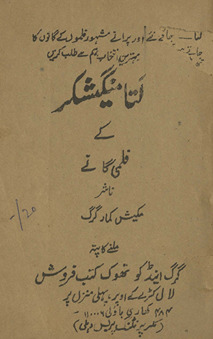 لتا
اور پرانے مشہور فلموں کے گانوں کا
بہترین انتخاب ہم سے طلب کریں
لتا منگیشکر
کے
فلمی گانے
ناشر
مکیش کمار گرگ
ملنے کا پتہ
گرگ اینڈ کو تھوک کتب فروش
لال کٹرے کے اوپر، پہلی منزل پر
۴۸۴ کھاری باؤلی ۱۱۰۰۰۶
پرنٹنگ پریس دہلی